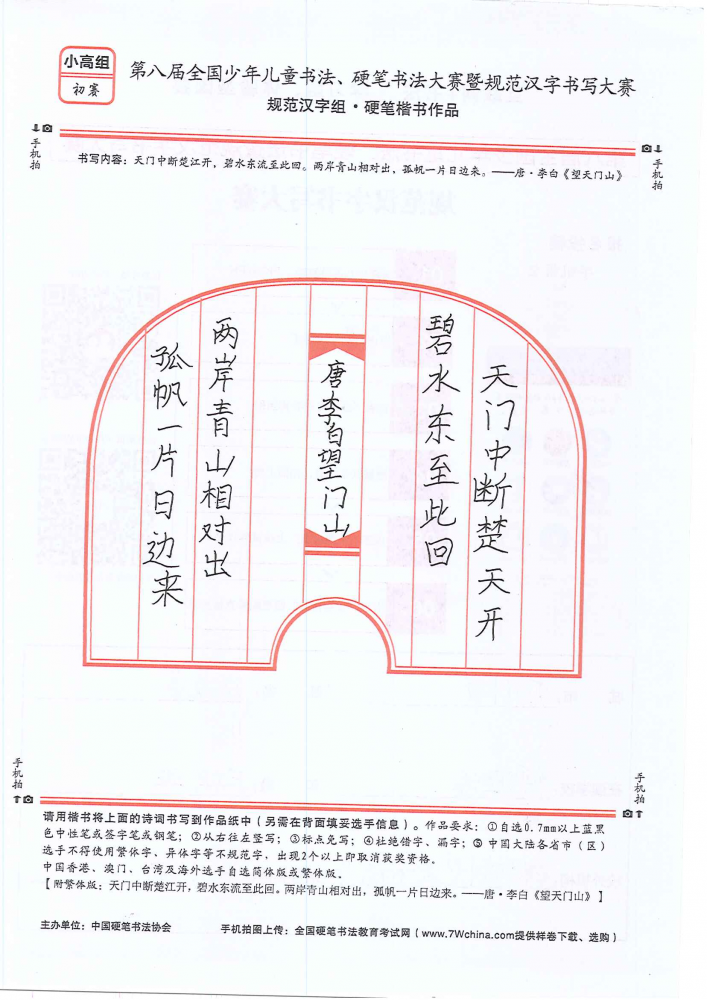 小高组
初赛
第八届全国少年儿童书法、硬笔书法大赛暨规范汉字书写大赛
规范汉字组·硬笔楷书作品
手机拍
手机拍
书写内容：天门中断楚江开，碧水东流至此回。两岸青山相对出，孤帆一片日边来。——唐·李白《望天门山》
天门中断楚天开
碧水东至此回
唐李白望门山
两岸青山相对出
孤帆一片日边来
手机拍
手机拍
请用楷书将上面的诗词书写到作品纸中（另需在背面填妥选手信息）。作品要求：①自选0.7mm以上蓝黑
色中性笔或签字笔或钢笔；②从右往左竖写；③标点免写；④杜绝错字、漏字；⑤中国大陆各省市（区）
选手不得使用繁体字、异体字等不规范字，出现2个以上即取消获奖资格。
中国香港、澳门、台湾及海外选手自选简体版或繁体版。
【附繁体版：天门中断楚江开，碧水东流至此回。两岸青山相对出，孤帆一片日边来。——唐·李白《望天门山》】
主办单位：中国硬笔书法协会
手机拍图上传：全国硬笔书法教育考试网（www.7Wchina.com提供样卷下载、选购）